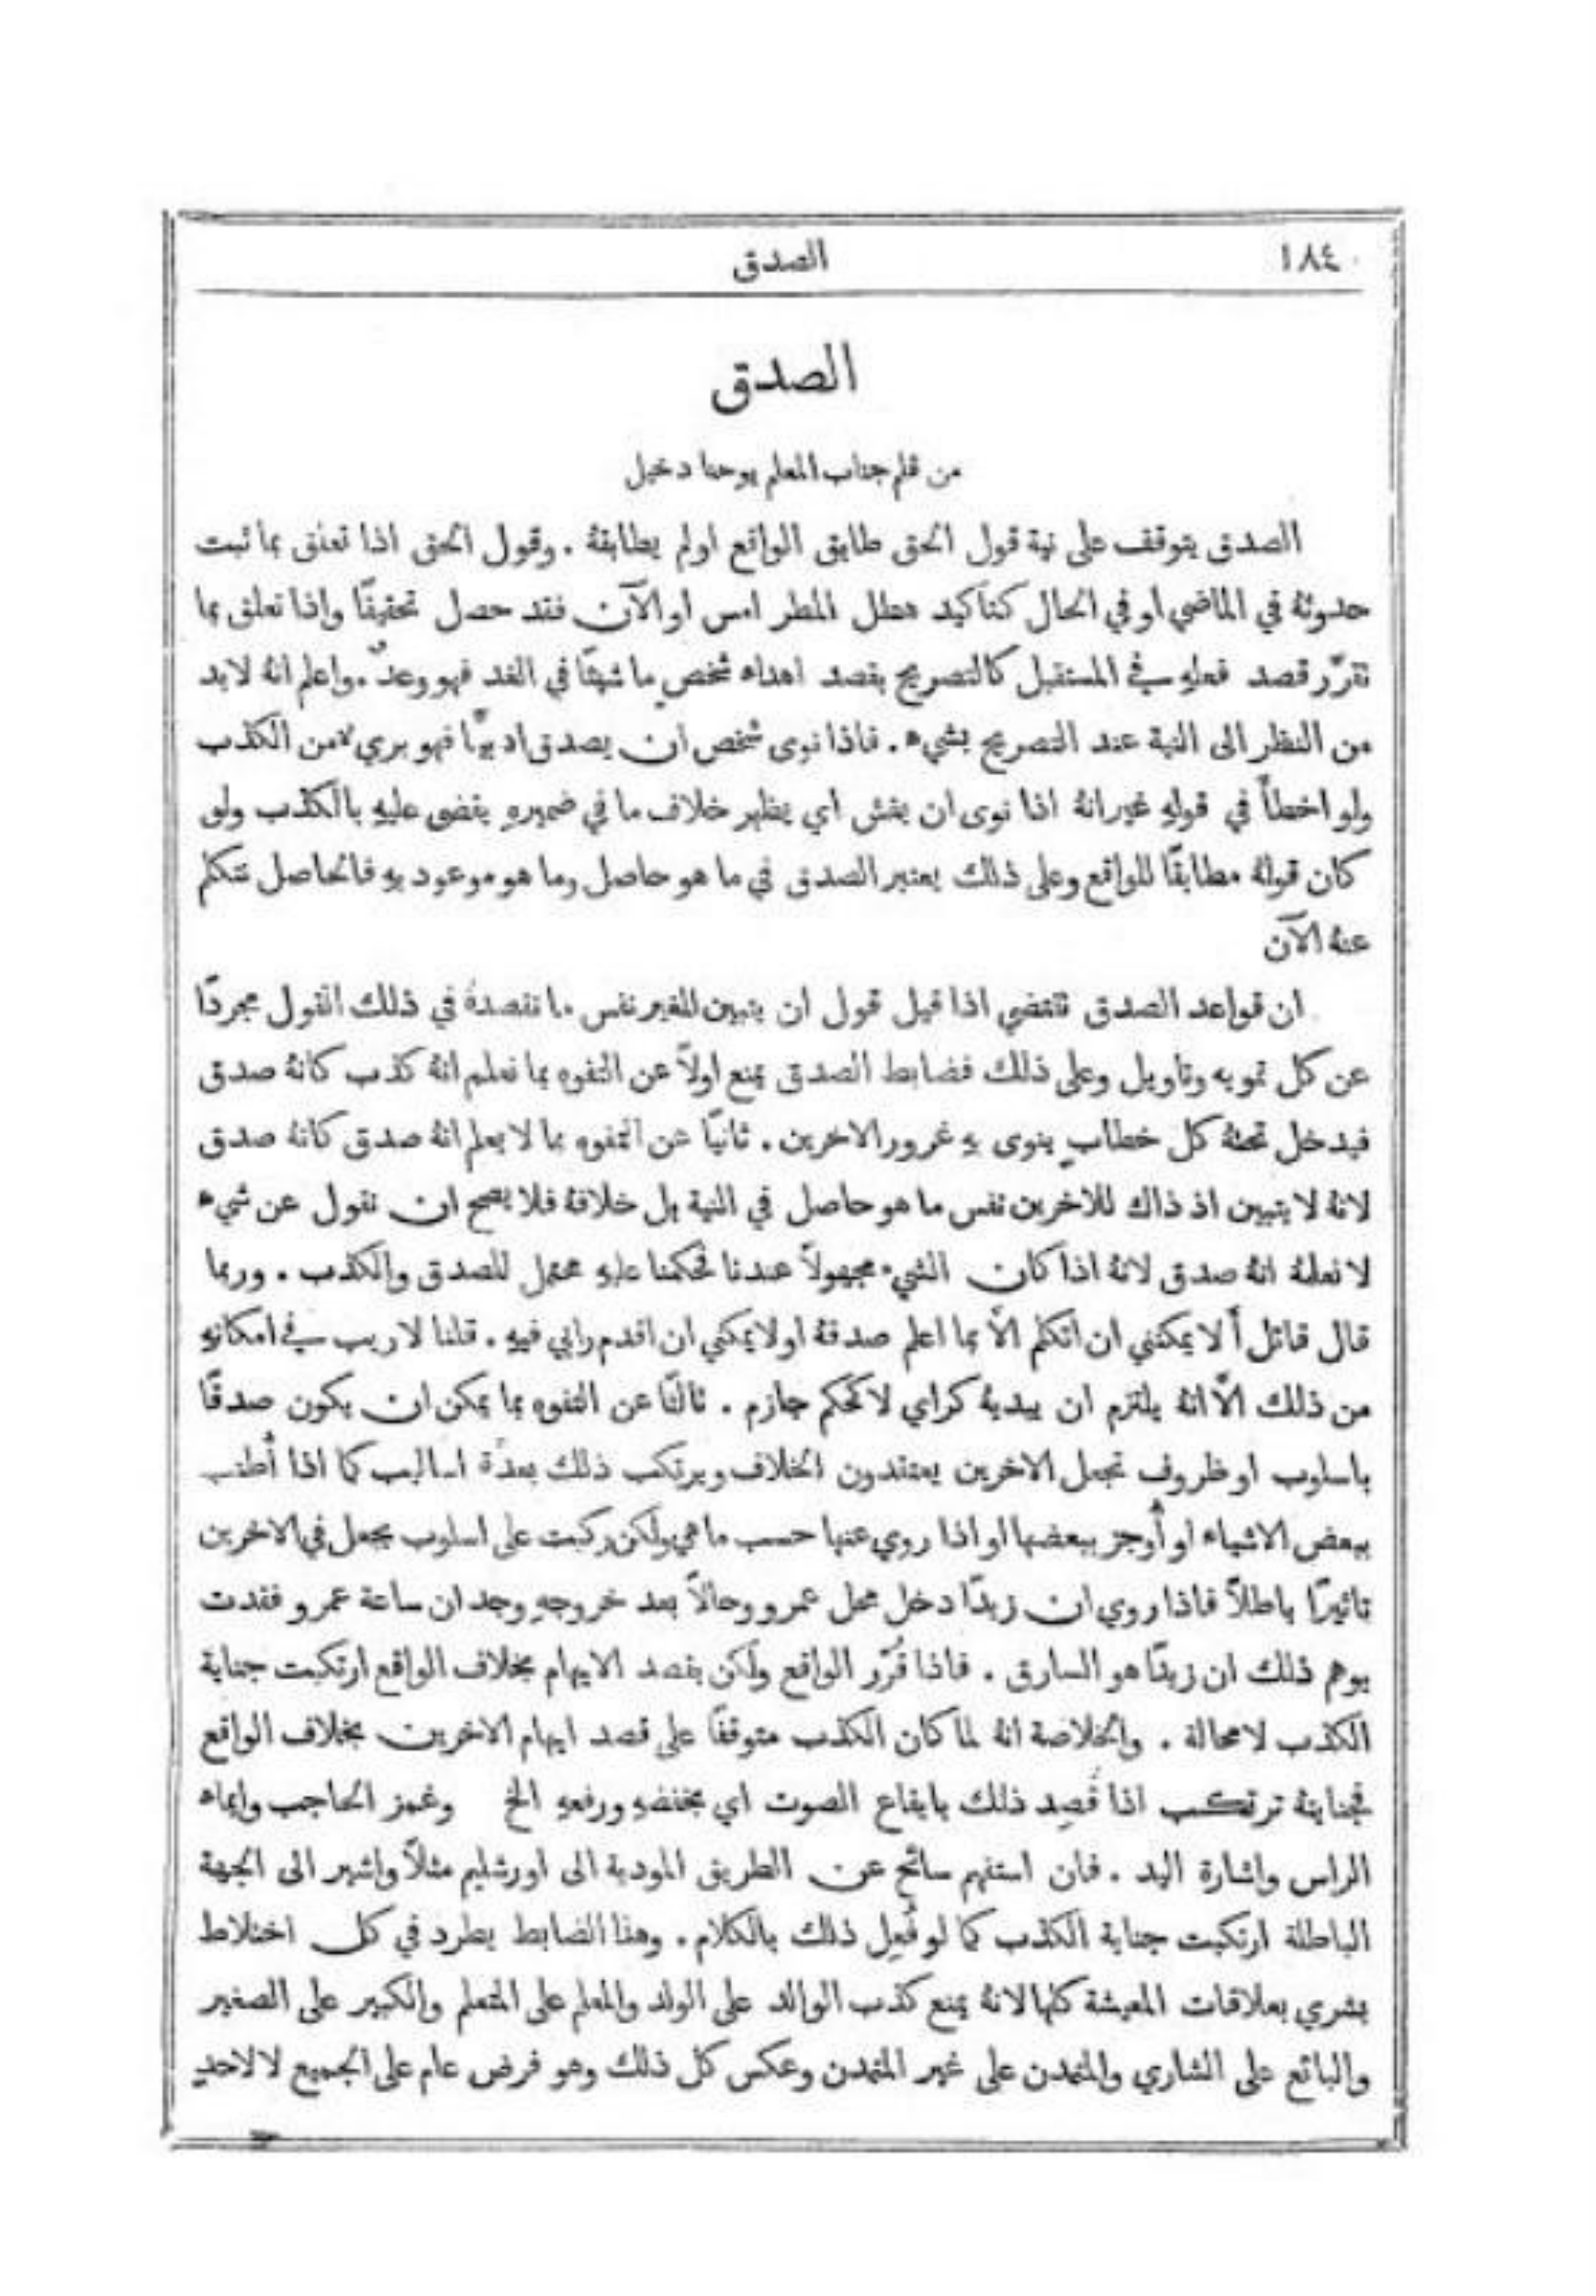 ١٨٤ الصدق
الصدق
من قلم جناب المعلم يوحنا دخيل
الصدق يتوقف على نية قول الحق طابق الواقع اولم يطابقهُ . وقول الحق اذا تعلق بما ثبت
حدوثهُ في الماضي او في الحال كتاكيد هطل المطر امس او الآن فقد حصل تحقيقًا واذا تعلق بما
تقرَّر قصد فعلهِ في المستقبل كالتصريح بقصد اهداء شخصٍ ما شيئًا في الغد فهو وعدٌ . واعلم انهُ لابد
من النظر الى النية عند التصريح بشيء . فاذا نوى شخص ان يصدق ادبيًّا فهو بريء من الكذب
ولو اخطأَ في قولهِ غير انهُ اذا نوى ان يغش اي يظهر خلاف ما في ضميرهِ يقضى عليهِ بالكذب ولو
كان قولهُ مطابقًا للواقع وعلى ذلك يعتبر الصدق في ما هو حاصل وما هو موعود بهِ فالحاصل نتكلم
عنهُ الآن
ان قواعد الصدق تقتضي اذا قيل قول ان يتبين للغير نفس ما نقصدهُ في ذلك القول مجردًا
عن كل تمويه وتاويل وعلى ذلك فضابط الصدق يمنع اولاً عن التفوه بما نعلم انهُ كذب كانهُ صدق
فيدخل تحتهُ كل خطابٍ ينوى بهِ غرور الاخرين . ثانيًا عن التفوه بما لا يعلم انهُ صدق كانهُ صدق
لانهُ لا يتبين اذ ذاك للاخرين نفس ما هو حاصل في النية بل خلافهُ فلا يصح ان نقول عن شيء
لا نعلمهُ انهُ صدق لانهُ اذا كان الشيء مجهولاً عندنا فحكمنا عليهِ محتمل للصدق والكذب . وربما
قال قائل أَلا يمكنني ان اتكلم الَّا بما اعلم صدقهُ او لا يمكني ان اقدم رايي فيهِ . قلنا لا ريب في امكانهِ
من ذلك الَّا انهُ يلتزم ان يبديهُ كراي لا كحكم جازم . ثالثًا عن التفوه بما يمكن ان يكون صدقًا
باسلوب او ظروف تجعل الاخرين يعتقدون الخلاف ويرتكب ذلك بعدَّة اساليب كما اذا أُطنب
ببعض الاشياء او أُوجز ببعضها او اذا روي عنها حسب ما هي ولكن ركبت على اسلوب يجعل في الاخرين
تاثيرًا باطلاً فاذا روي ان زيدًا دخل محل عمرو وحالاً بعد خروجهِ وجد ان ساعة عمرو فقدت
يوهم ذلك ان زيدًا هو السارق . فاذا قُرِّر الواقع ولكن بقصد الايهام بخلاف الواقع ارتكبت جناية
الكذب لا محالة . والخلاصة انهُ لما كان الكذب متوقفًا على قصد ايهام الاخرين بخلاف الواقع
فجنايتهُ ترتكب اذا قُصِد ذلك بايقاع الصوت اي بخفضهِ ورفعهِ الخ وغمز الحاجب وايماء
الراس واشارة اليد . فان استفهم سائح عن الطريق المودية الى اورشليم مثلاً واشير الى الجهة
الباطلة ارتكبت جناية الكذب كما لو فُعِل ذلك بالكلام . وهذا الضابط يطرد في كل اختلاط
بشري بعلاقات المعيشة كلها لانهُ يمنع كذب الوالد على الولد والمعلم على المتعلم والكبير على الصغير
والبائع على الشاري والمتمدن على غير المتمدن وعكس كل ذلك وهو فرض عام على الجميع لا لاحدٍ